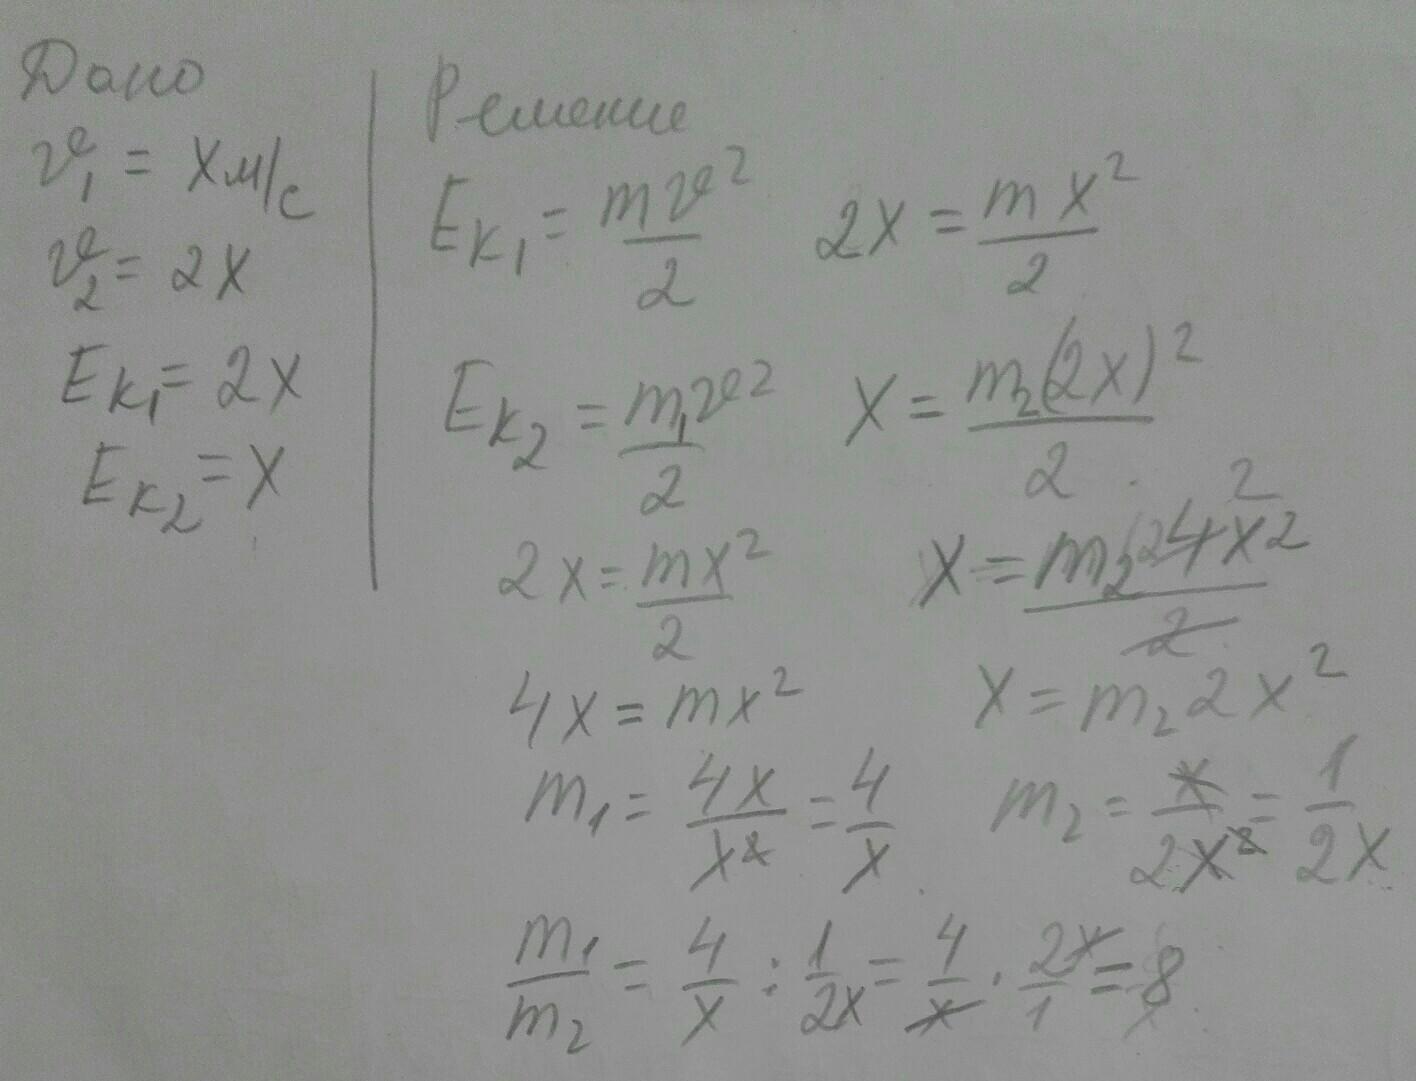 Дано
υ₁ = x м/с
υ₂ = 2x
Eк₁ = 2x
Eк₂ = x
Решение
Eк₁ = mυ²/2   2x = mx²/2
Eк₂ = m₁υ²/2   x = m₂(2x)²/2
2x = mx²/2   x = m₂4x²/2
4x = mx²   x = m₂2x²
m₁ = 4x/x² = 4/x   m₂ = x/2x² = 1/2x
m₁/m₂ = 4/x : 1/2x = 4/x · 2x/1 = 8